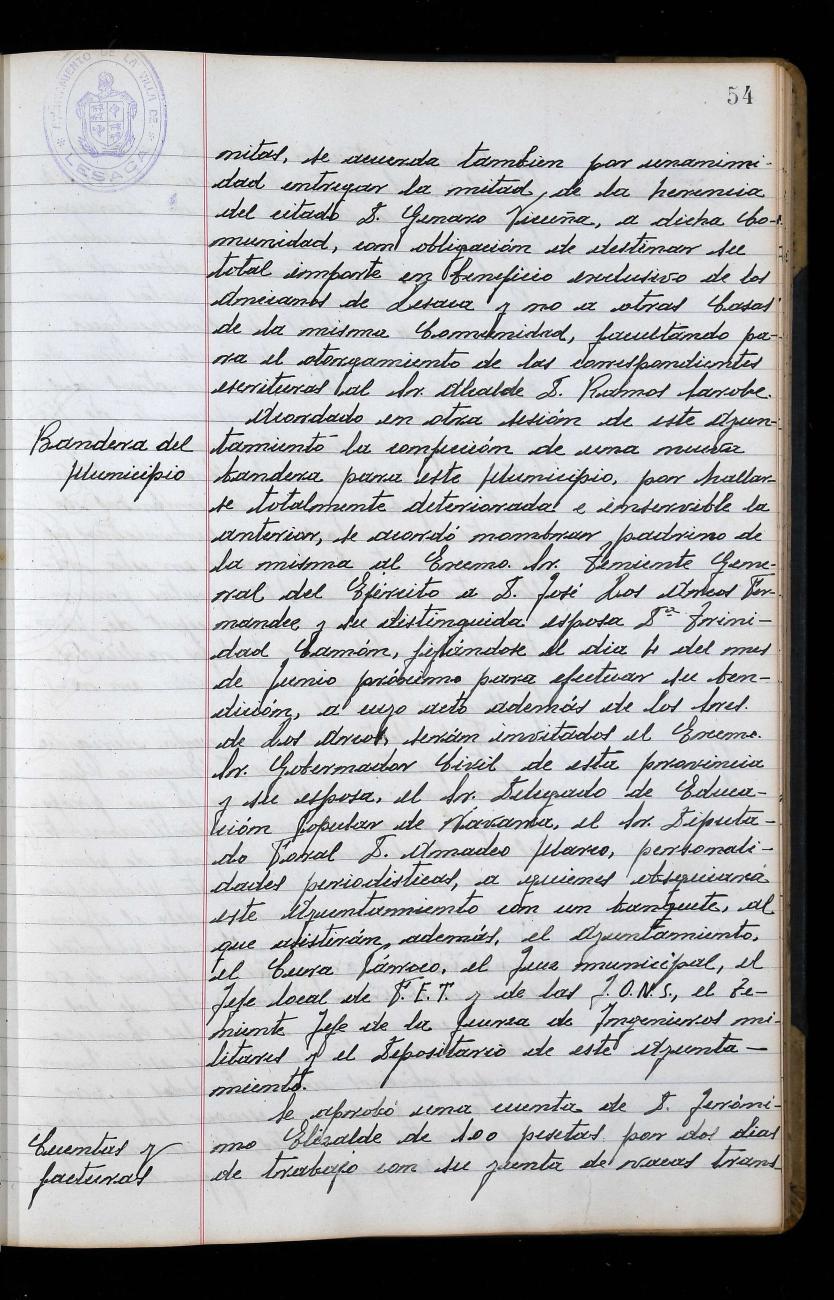 54
AYUNTAMIENTO DE LA VILLA DE
LESACA
nitas, se acuerda tambien por unanimi-
dad entregar la mitad de la herencia
del citado D. Genaro Vicuña, a dicha Co-
munidad, con obligación de destinar su
total importe en beneficio exclusivo de los
Ancianos de Lesaca y no a otras Casas
de la misma Comunidad, facultando pa-
ra el otorgamiento de las correspondientes
escrituras al Sr. Alcalde D. Ramos Sarobe.
Bandera del
Municipio
Acordado en otra sesión de este Ayun-
tamiento la confección de una nueva
bandera para este Municipio, por hallar-
se totalmente deteriorada e inservible la
anterior, se acordó nombrar padrino de
la misma al Excmo. Sr. Teniente Gene-
ral del Ejército a D. José Los Arcos Fer-
nandez y su distinguida esposa Dª Trini-
dad Camón, fijándose el dia 4 del mes
de Junio próximo para efectuar su ben-
dición, a cuyo acto además de los Sres.
de Los Arcos, serán invitados el Excmo.
Sr. Gobernador Civil de esta provincia
y su esposa, el Sr. Delegado de Educa-
ción Popular de Navarra, el Sr. Diputa-
do Foral D. Amadeo Marco, personali-
dades periodisticas, a quienes obsequiará
este Ayuntamiento con un banquete, al
que asistirán, además, el Ayuntamiento,
el Cura Párroco, el Juez municipal, el
Jefe local de F.E.T. y de las J.O.N.S., el Te-
niente Jefe de la fuerza de Ingenieros mi-
litares y el Depositario de este Ayunta-
miento.
Cuentas y
facturas
Se aprobó una cuenta de D. Jeróni-
mo Elizalde de 100 pesetas por dos dias
de trabajo con su yunta de vacas trans